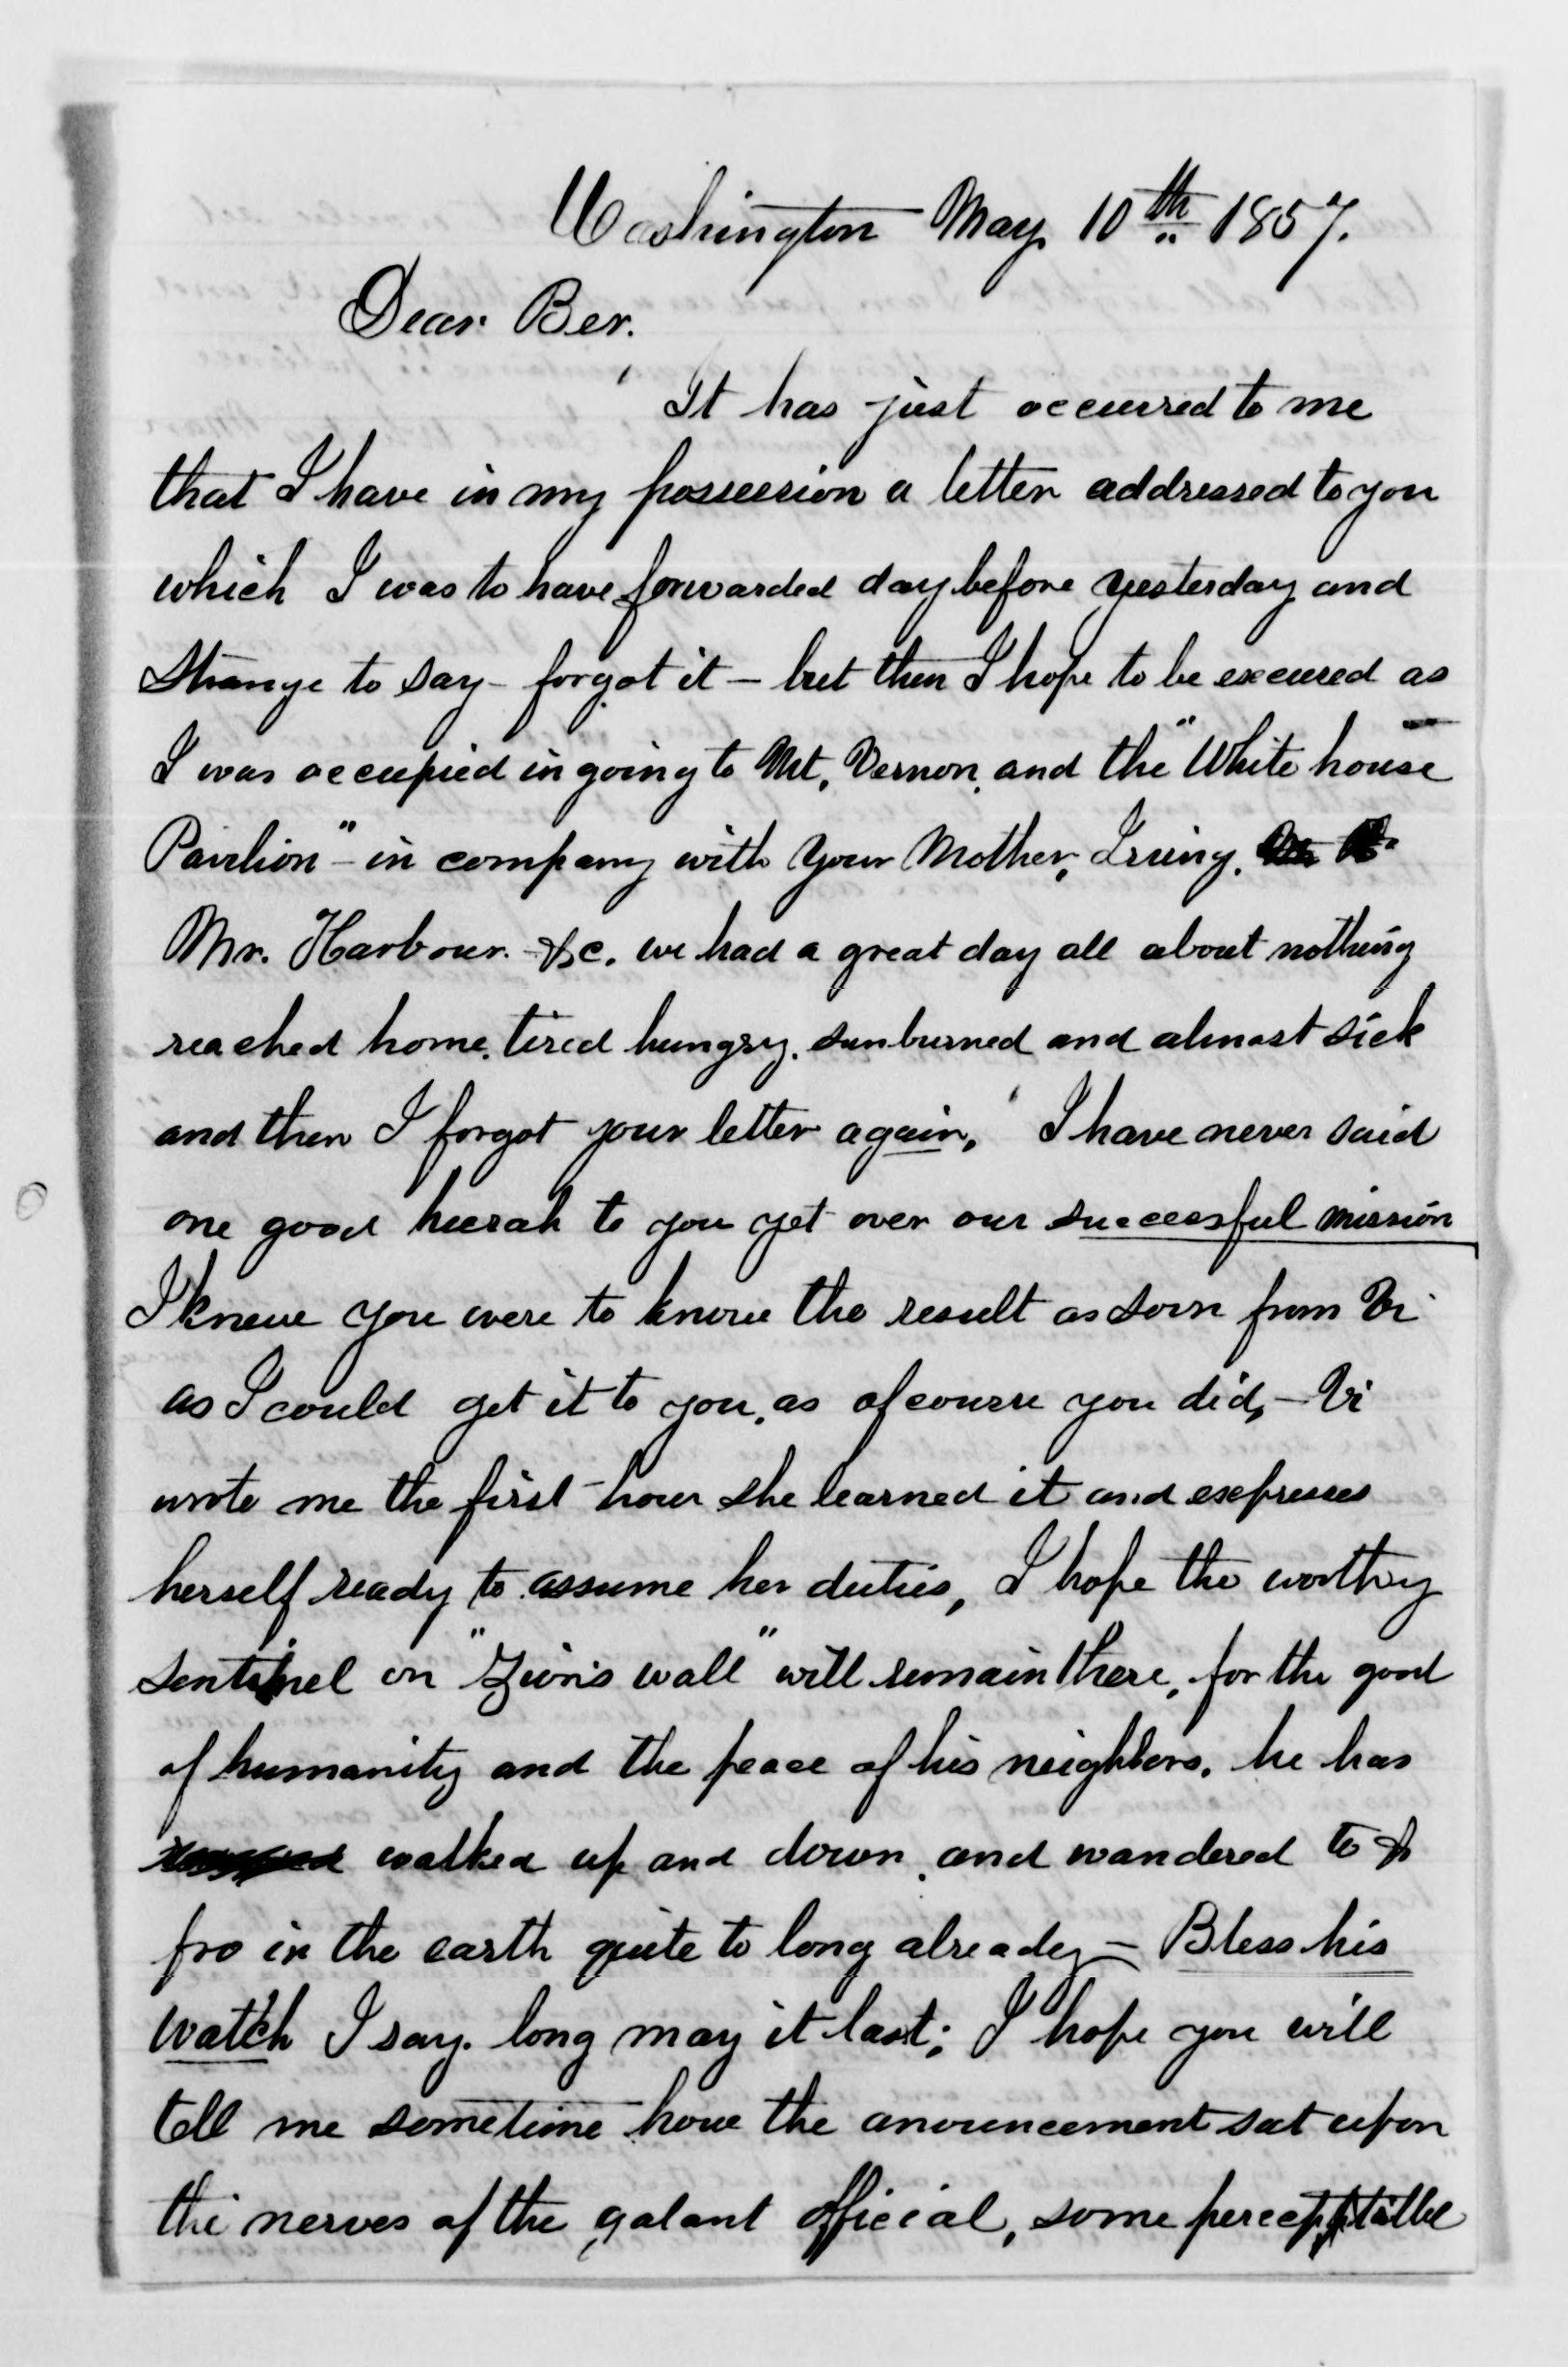 Washington May 10th 1857.
Dear Ber.
It has just occurred to me
that I have in my possession a letter addressed to you
which I was to have forwarded day before yesterday and
strange to say - forgot it - but then I hope to be excused as
I was occupied in going to Mt, Vernon, and the "White house
Pavilion" - in company with your Mother, Irving,
Mr. Harbour. &c. we had a great day all about nothing
reached home, tired hungry, sunburned and almost sick
and then I forgot your letter again, I have never said
one good hurah to you yet over our successful mission
I knew you were to know the result as soon from Vi
as I could get it to you, as of course you did, - Vi
wrote me the first hour she learned it and expresses
herself ready to assume her duties, I hope the worthy
sentinel on "Zion's wall" will remain there, for the good
of humanity and the peace of his neighbors, he has
walked up and down, and wandered to &
fro in the earth quite to long already - Bless his
watch I say. long may it last; I hope you will
tell me sometime how the anouncement sat upon
the nerves of the galant official, some perceptable